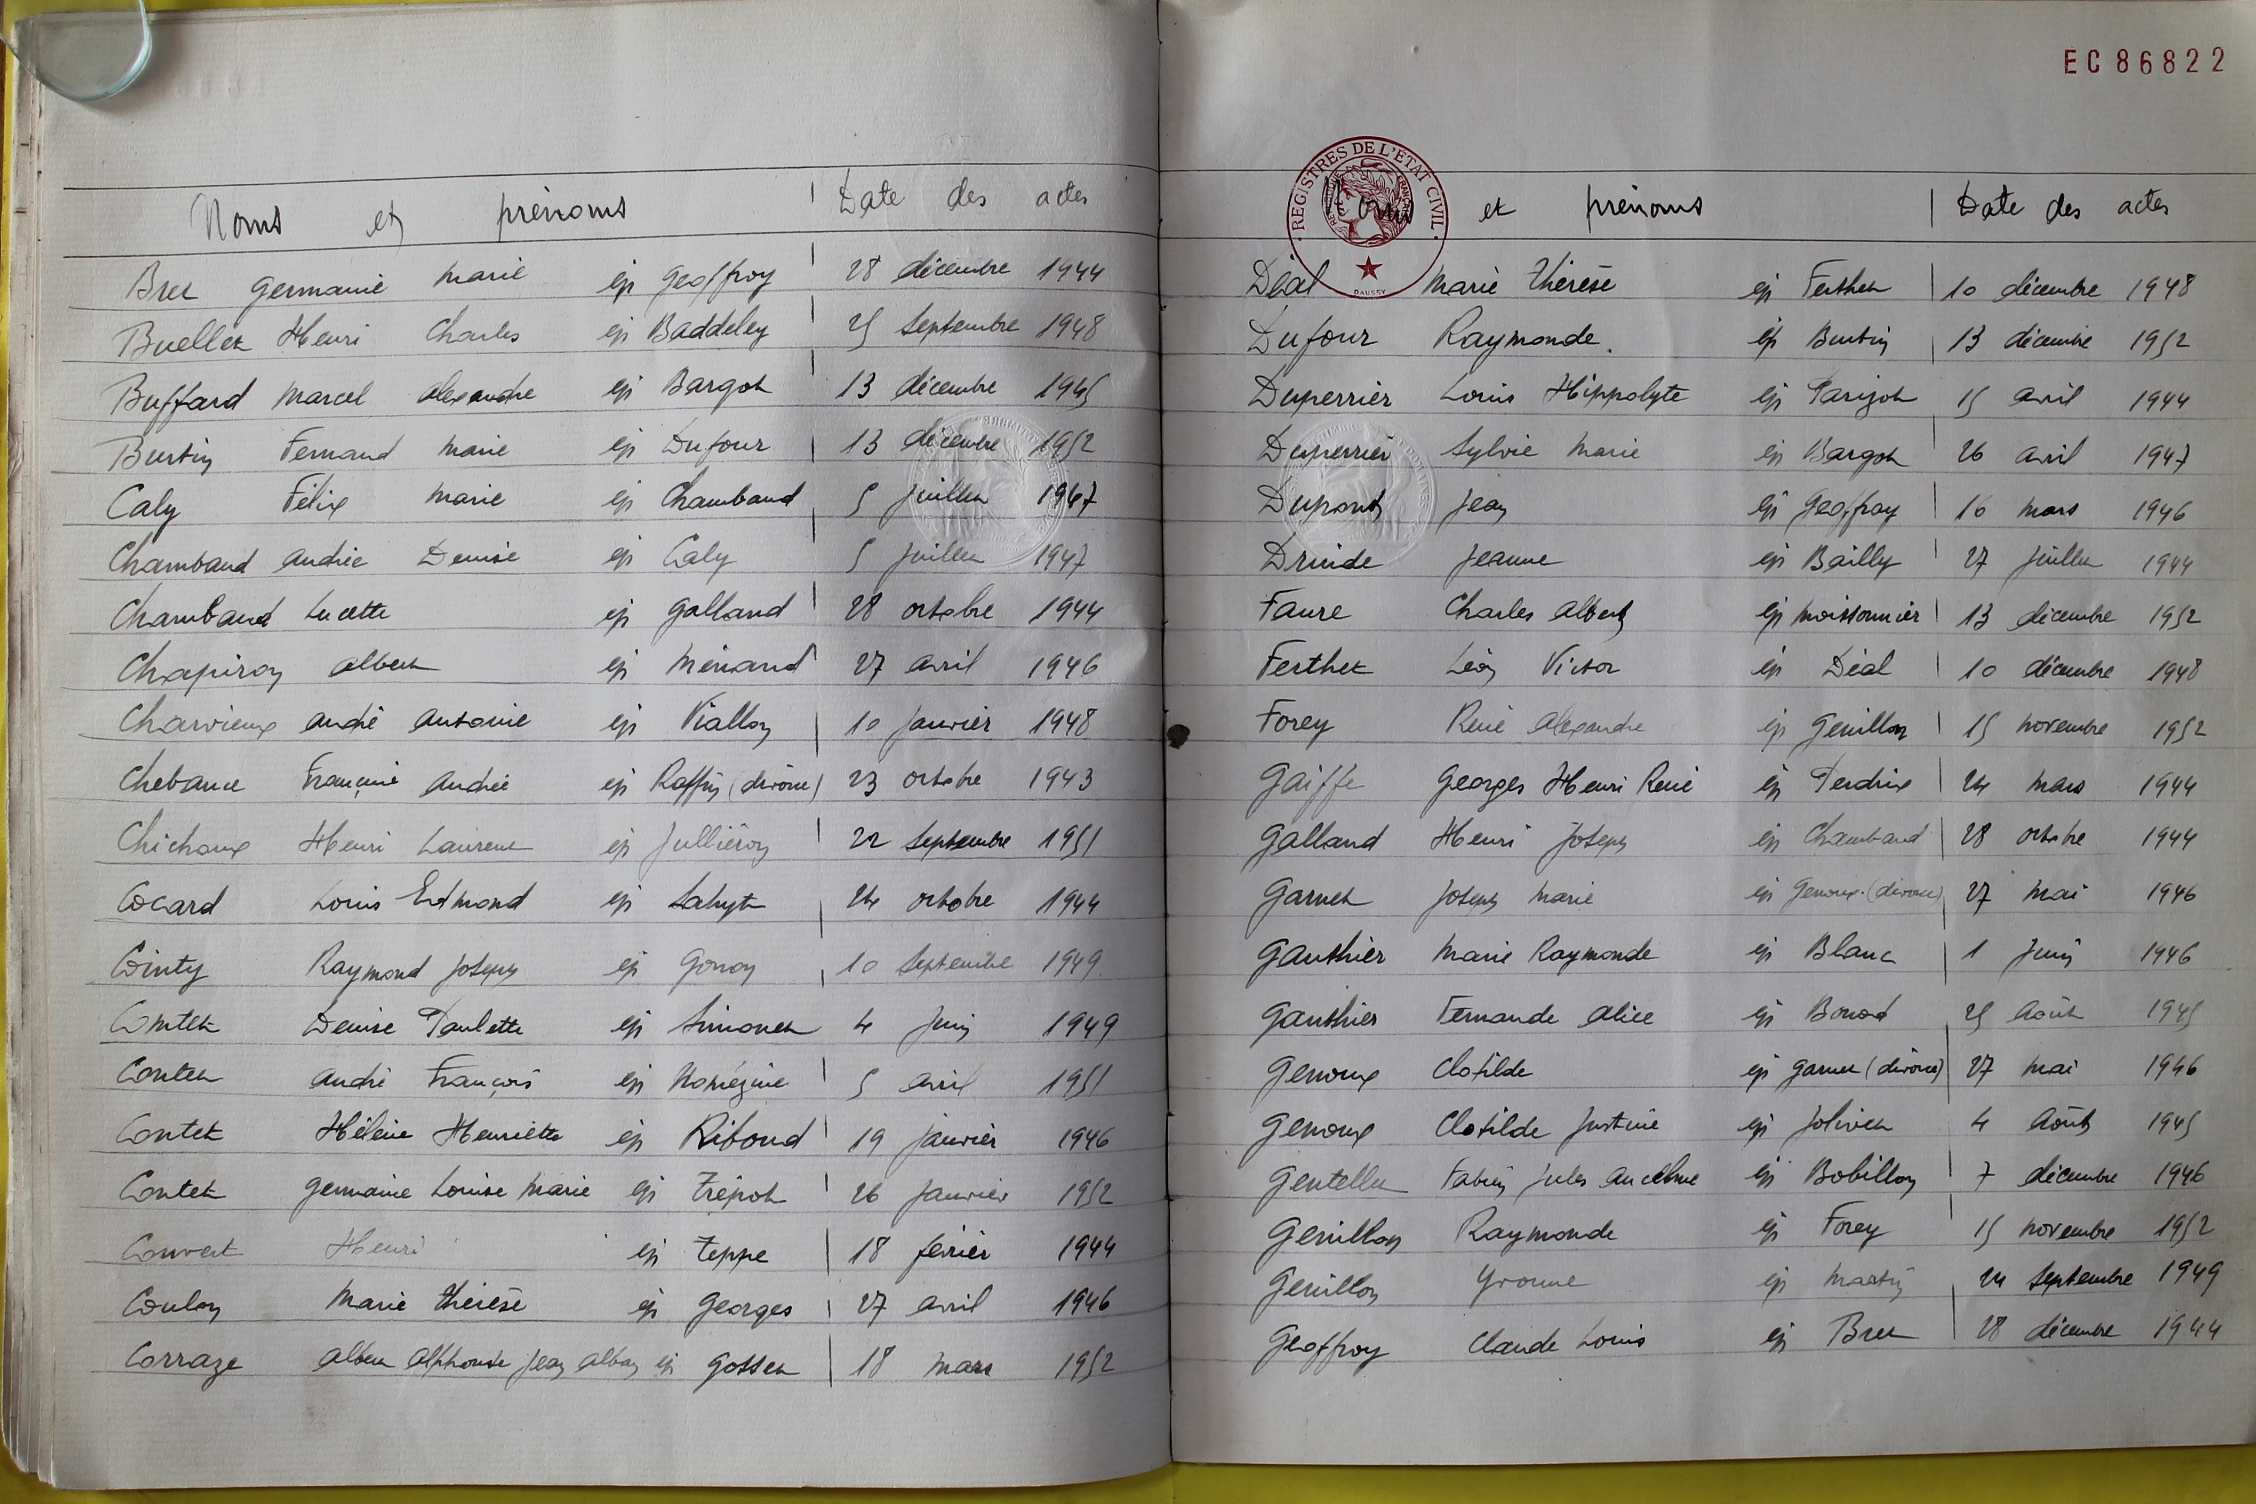 Noms et prénoms Date des actes
Bret Germaine Marie ép Geoffroy 28 décembre 1944
Buellet Henri Charles ép Baddeley 25 septembre 1948
Buffard Marcel Alexandre ép Bargot 13 décembre 1945
Burtin Fernand Marie ép Dufour 13 décembre 1952
Caly Félix Marie ép Chambaud 5 juillet 1947
Chambaud Andrée Denise ép Caly 5 juillet 1947
Chambaud Lucette ép Galland 28 octobre 1944
Chapiron Albert ép Menand 27 avril 1946
Charvieux André Antoine ép Viallon 10 janvier 1948
Chebance Françine Andrée ép Raffin (divorce) 23 octobre 1943
Chichoux Henri Laurent ép Julliéron 22 septembre 1951
Cocard Louis Edmond ép 24 octobre 1944
Cointy Raymond Joseph ép Gonon 10 septembre 1949
Comtet Denise Paulette ép Simonet 4 juin 1949
Contet André François ép 5 avril 1951
Contet Hélène Henriette ép Riboud 19 janvier 1946
Contet Germaine Louise Marie ép Trépot 26 janvier 1952
Convert Henri ép Teppe 18 février 1944
Coulon Marie Thérèse ép Georges 27 avril 1946
Corraze Albert Alphonse Jean Alban ép Gosset 18 mars 1952
EC86822
REGISTRES DE L'ETAT CIVIL
DAUSSY
Noms et prénoms Date des actes
Déal Marie Thérèse ép Ferthet 10 décembre 1948
Dufour Raymonde ép Burtin 13 décembre 1952
Duperrier Louis Hippolyte ép Parizot 15 avril 1944
Duperrier Sylvie Marie ép Bargot 26 avril 1947
Dupont Jean ép Geoffray 16 mars 1946
Druide Jeanne ép Bailly 27 juillet 1944
Faure Charles Albert ép Moissonnier 13 décembre 1952
Ferthet Léon Victor ép Déal 10 décembre 1948
Forey René Alexandre ép Genillon 15 novembre 1952
Gaiffe Georges Henri René ép Perdrix 24 mars 1944
Galland Henri Joseph ép Chambaud 28 octobre 1944
Garnet Joseph Marie ép Genoux (divorce) 27 mai 1946
Gauthier Marie Raymonde ép Blanc 1 juin 1946
Gauthier Fernande Alice ép 25 août 1945
Genoux Clotilde ép Garnet (divorce) 27 mai 1946
Genoux Clotilde Justine ép Jolivet 4 août 1945
Gentellet Fabien Jules Ancelme ép Bobillon 7 décembre 1946
Genillon Raymonde ép Forey 15 novembre 1952
Genillon Yvonne ép Martin 24 septembre 1949
Geoffroy Claude Louis ép Bret 28 décembre 1944